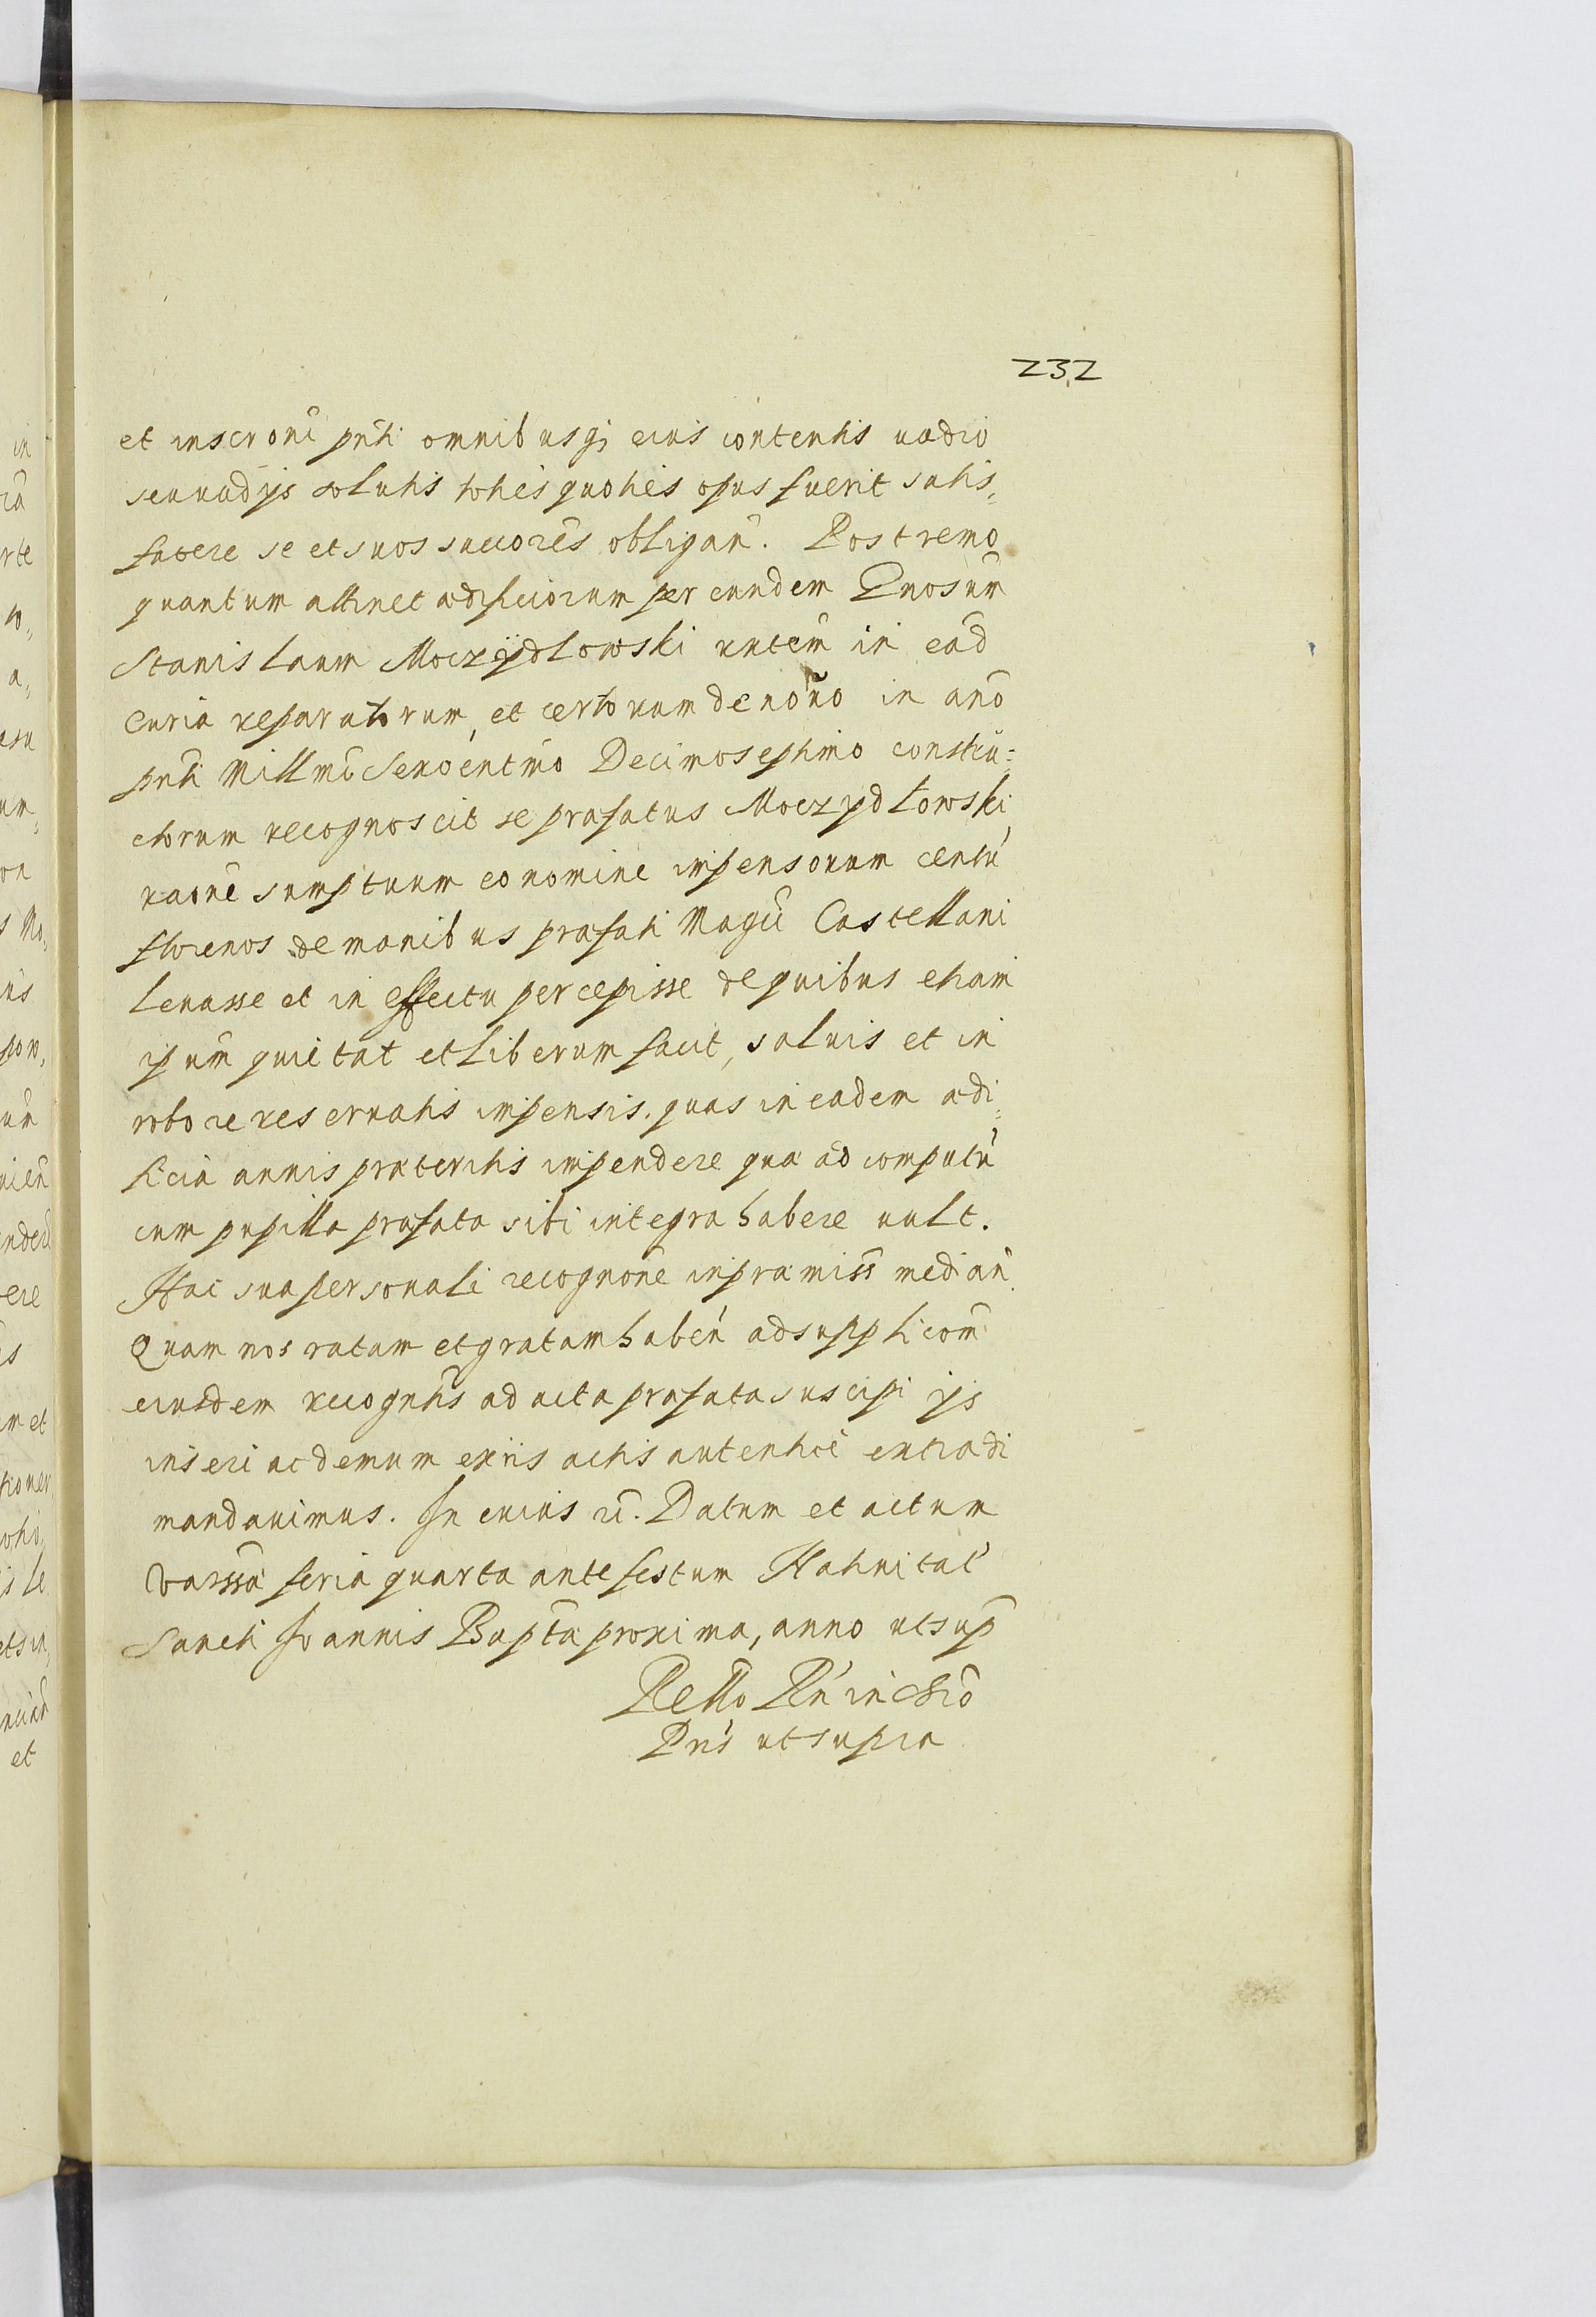 232
et inscroni pnti omnibusq3 eius contentis vadio
seu vadijs solutis toties quoties opus fuerit satis„
facere se et suos succores obligan. Postremo
quantum attinet ædificiorum per eundem Gnosum
Stanislaum Moczydlowski autem in ead
curia reparatorum, et certorum de novo in ano
pnti Millmo Sexcentmo Decimoseptimo constru=
ctorum recognoscit se præfatus Moczydlowski
raone sumptuum eo nomine impensorum centu
florenos de manibus præfati Magci Castellani
Levasse et in effectu percepisse de quibus etiam
ipsum quietat et liberum facit, salvis et in
robore reservatis impensis. quas in eadem ædi„
ficia annis præteritis impendere quæ ad computu
cum pupilla præfata sibi integra habere vult.
Hac sua personali recognone in præmiss median
Quam nos ratam et gratam haben ad supplicom
eiusdem recogntis ad acta præfata suscipi ijs
inseri ac demum ex iis actis autentice extradi
mandavimus. In cuius rei. Datum et actum
Varssæ feria quarta ante festum Nativitat
Sancti Joannis Baptæ proxima, anno ut sup
Rello Rn in Chro
Pris ut supra
in
rte
a„
s Mo„
ere
m et
is le
et